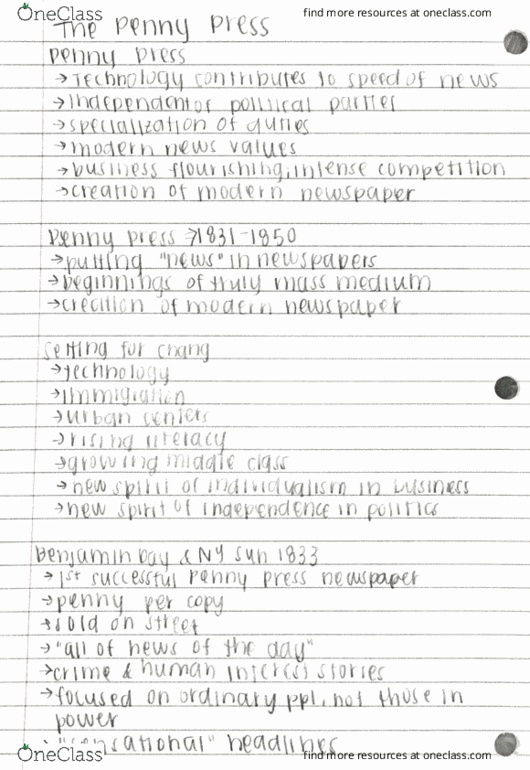 OneClass
find more resources at oneclass.com
The Penny Press
Penny Press
→Technology contributes to speed of news
→Independent of political parties
→specialization of duties
→modern news values
→business flourishing, intense competition
→creation of modern newspaper
Penny press →1831-1850
→putting "news" in newspapers
→beginnings of truly mass medium
→creation of modern newspaper
Setting for chang
→technology
→Immigration
→urban centers
→rising literacy
→growing middle class
→new spirit of individualism in business
→new spirit of independence in politics
Benjamin Day & NY Sun 1833
→1st successful penny press newspaper
→penny per copy
→sold on street
→"all of news of the day"
→crime & human interest stories
→focused on ordinary ppl, not those in
power
"sensational" headlines
OneClass
find more resources at oneclass.com